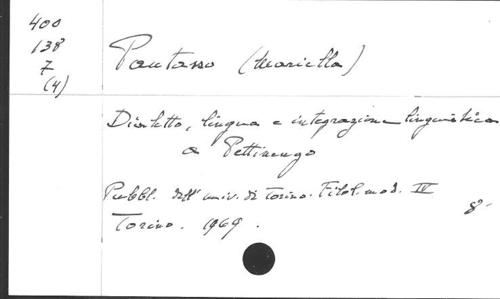 400
138
7
(4)
Pautasso (Mariella)
Dialetto, lingua e integrazione linguistica
a Pettinengo
Pubbl. dell' univ. di Torino. Filol. mod. IV
Torino. 1969.
8°